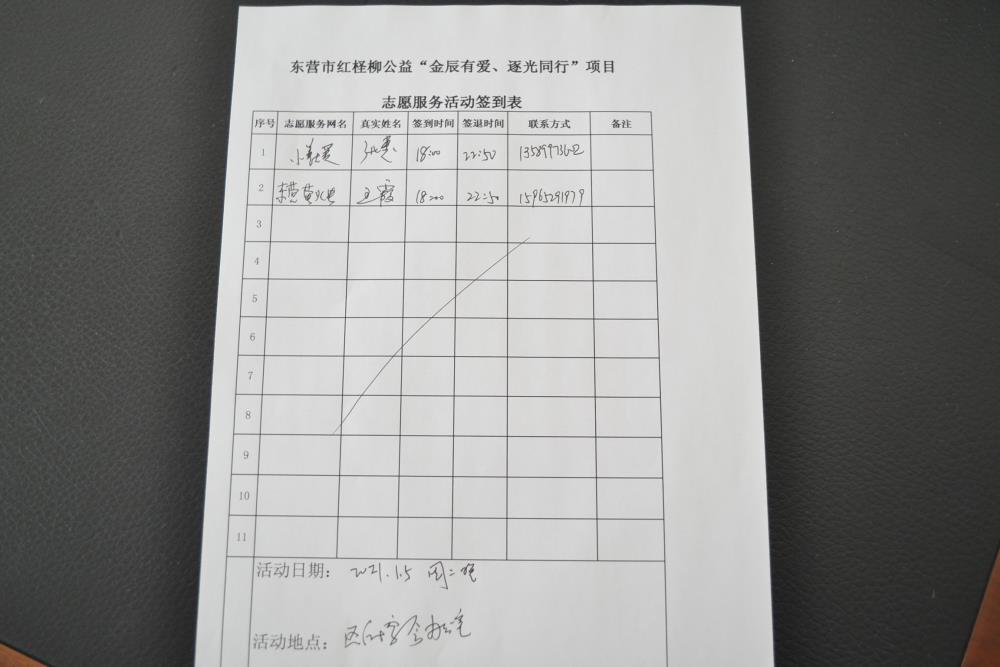 东营市红柽柳公益“金辰有爱、逐光同行”项目
志愿服务活动签到表
序号 志愿服务网名 真实姓名 签到时间 签退时间 联系方式 备注
1 18:00 22:50
2 东营萤火虫 王霞 18:00 22:50 15965291979
3
4
5
6
7
8
9
10
11
活动日期： 2021.1.5 周二晚
活动地点：